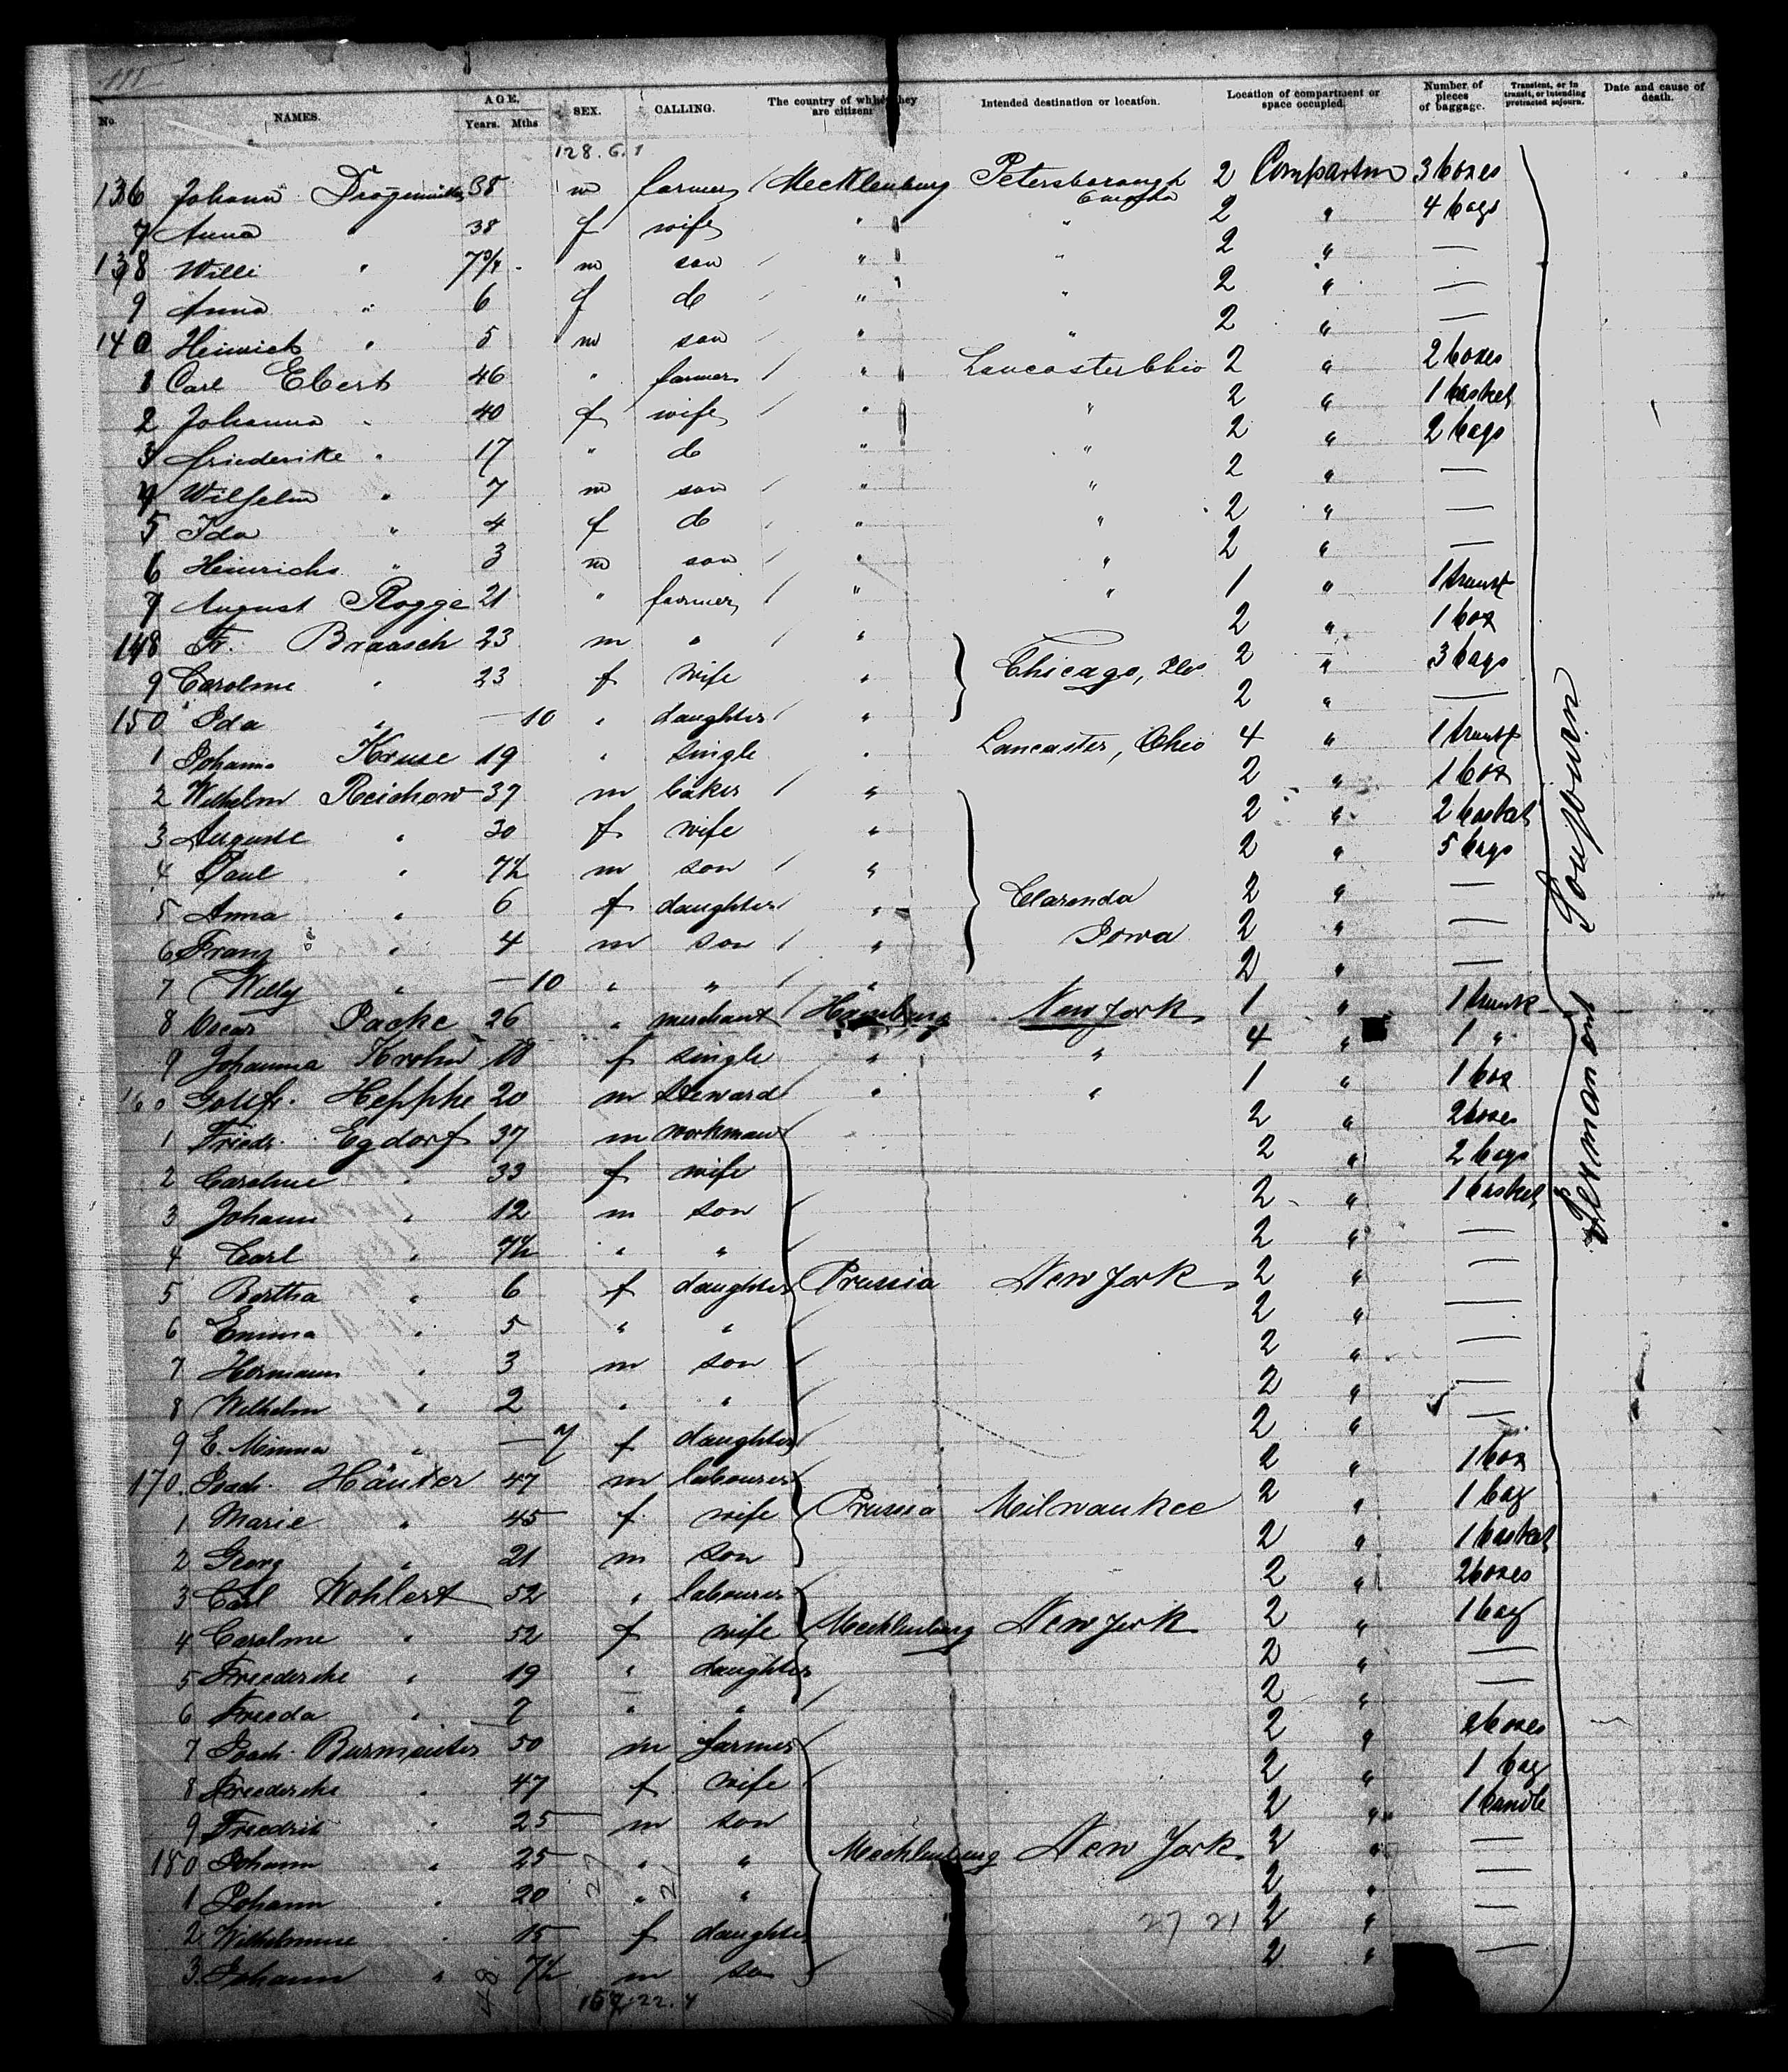 No. NAMES. AGE. Years. Mths SEX. CALLING. The country of which they are citizens Intended destination or location. Location of compartment or space occupied. Number of pieces of baggage. Transient, or in transit, or intending protracted sojourn. Date and cause of death.
128. 6. 1
136 Johann 38 m farmer Mecklenburg Petersborough 2 Compartm 3 boxes
7 Anna " 38 f wife " " 2 " 4 bags
138 Willi " 7 m son " " 2 " —
9 Anna " 6 f do " " 2 " —
140 Heinrich " 5 m son " " 2 " —
1 Carl Ebert 46 " farmer " Lancaster Ohio 2 " 2 boxes
2 Johanna " 40 f wife " " 2 " 1 basket
3 Friederike " 17 " do " " 2 " 2 bags
4 Wilhelm " 7 m son " " 2 " —
5 Ida " 4 f do " " 2 " —
6 Heinrichs " 3 m son " " 2 " —
7 August Rogge 21 " farmer " " 1 " 1 trunk
148 Fr. Braasch 23 m " " 2 " 1 box
9 Caroline " 23 f wife " Chicago, Ills 2 " 3 bags
150 Ida " — 10 " daughter " 2 " —
1 Johanna Kruse 19 " single " Lancaster, Ohio 4 " 1 trunk
2 Wilhelm Reichow 37 m baker " 2 " 1 box
3 Auguste " 30 f wife " 2 " 2 baskets
4 Paul " 7½ m son " 2 " 5 bags
5 Anna " 6 f daughter " Clarenda 2 " —
6 Franz " 4 m son " Iowa 2 " —
7 Willy " — 10 " " " 2 " —
8 Oscar Packe 26 " merchant Hamburg New York 1 " 1 trunk
9 Johanna Krohn 18 f single " " 4 " 1 "
160 Gottfr. Heppke 20 m Steward " " 1 " 1 box
1 Friedr. Egdorf 37 m workman 2 " 2 boxes
2 Caroline " 33 f wife 2 " 2 bags
3 Johann " 12 m son 2 " 1 basket
4 Carl " 7½ " " 2 " —
5 Bertha " 6 f daughter Prussia New York 2 " —
6 Emma " 5 " " 2 " —
7 Hermann " 3 m son 2 " —
8 Wilhelm " 2 " " 2 " —
9 E. Minna " — 7 f daughter 2 " —
170 Joach. Häuser 47 m labourer 2 " 1 box
1 Marie " 45 f wife Prussia Milwaukee 2 " 1 bag
2 Georg " 21 m son 2 " 1 basket
3 Carl Wohlert 52 " labourer 2 " 2 boxes
4 Caroline " 52 f wife Mecklenburg New York 2 " 1 bag
5 Friederike " 19 " daughter 2 " —
6 Frieda " 7 " " 2 " —
7 Joach. Burmeister 50 m farmer 2 " 2 boxes
8 Friederike " 47 f wife 2 " 1 bag
9 Friedrich " 25 m son 2 " 1 bundle
180 Johann " 25 " " Mecklenburg New York 2 " —
1 Johann " 20 " " 2 " —
2 Wilhelmine " 15 f daughter 2 " —
3 Johann " 7½ m son 2 " —
27 21
Permanent Soujourn